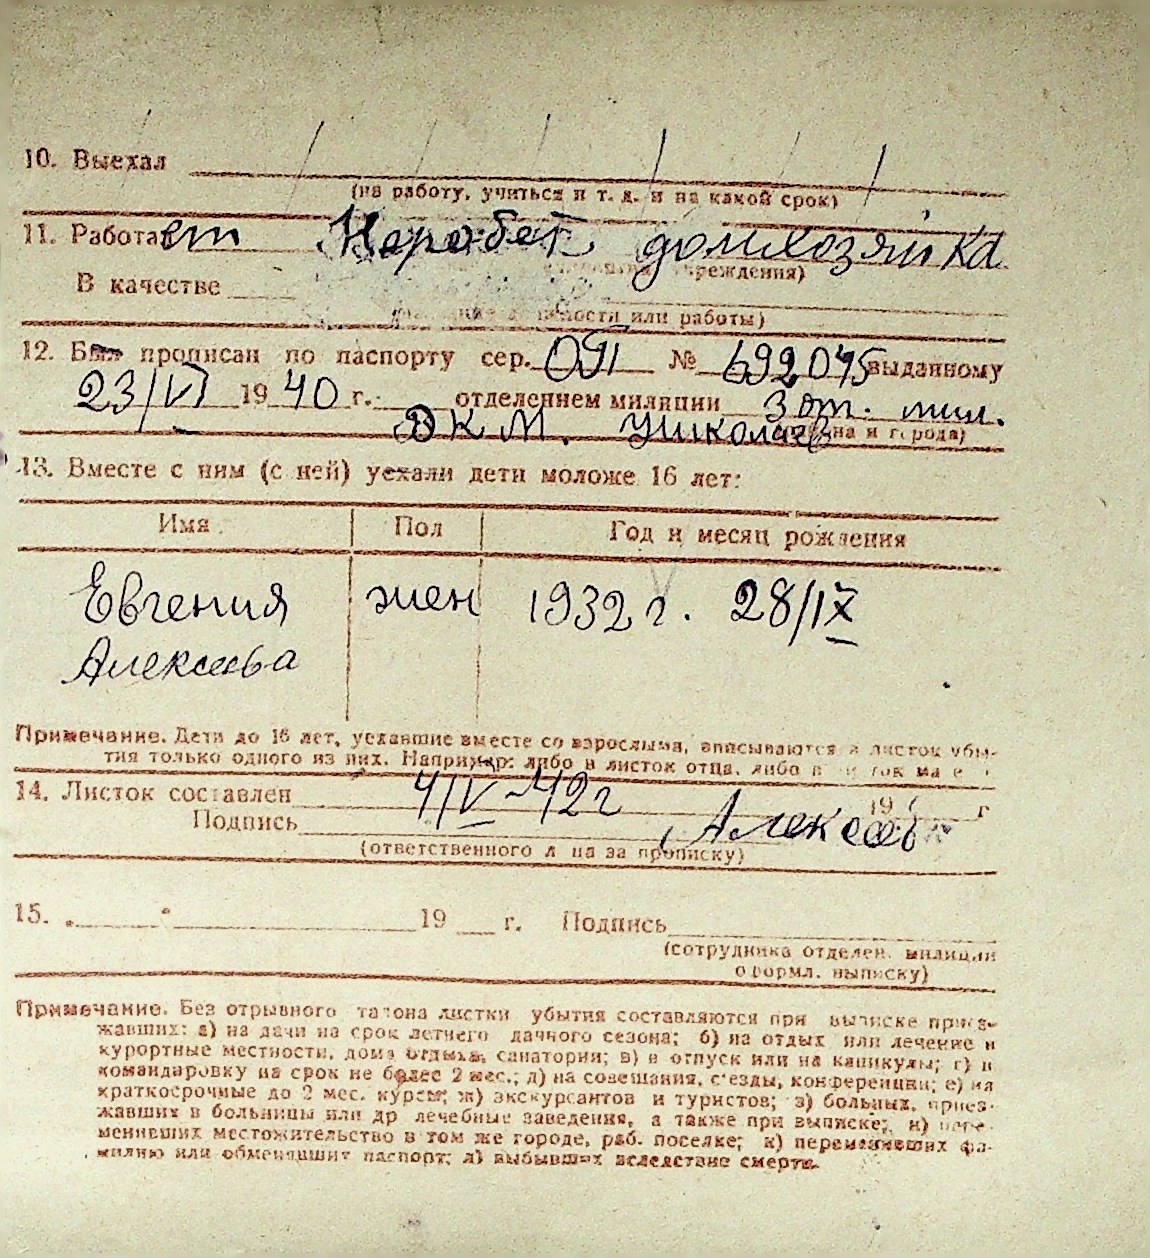 10. Выехал
(на работу, учиться и т. д. и на какой срок)
11. Работает Неработ домхозяйка
учреждения)
В качестве
или работы)
12. Был прописан по паспорту сер. № 692045 выданному
23/VI 1940 г. отделением милиции 3 от. мил.
и города)
РКМ.
13. Вместе с ним (с ней) уехали дети моложе 16 лет:
Имя Пол Год и месяц рождения
Евгения жен 1932 г. 28/IX
Алексеева
Примечание. Дети до 16 лет, уехавшие вместе со взрослыми, вписываются в листок убы-
тия только одного из них. Например: либо в листок отца, либо в листок матери
14. Листок составлен 4/IV-42 г 19 г
Подпись Алексеев
(ответственного лица за прописку)
15. 19 г. Подпись
(сотрудника отделен. милиции
оформл. выписку)
Примечание. Без отрывного талона листки убытия составляются при выписке приез-
жавших: а) на дачи на срок летнего дачного сезона; б) на отдых или лечение в
курортные местности, дома отдыха, санатории; в) в отпуск или на каникулы; г) в
командировку на срок не более 2 мес.; д) на совещания, с'езды, конференции; е) на
краткосрочные до 2 мес. курсы; ж) экскурсантов и туристов; з) больных, приез-
жавших в больницы или др лечебные заведения, а также при выписке; и) пере-
менивших местожительство в том же городе, раб. поселке; к) переменивших фа-
милию или обменявших паспорт; л) выбывших вследствие смерти.